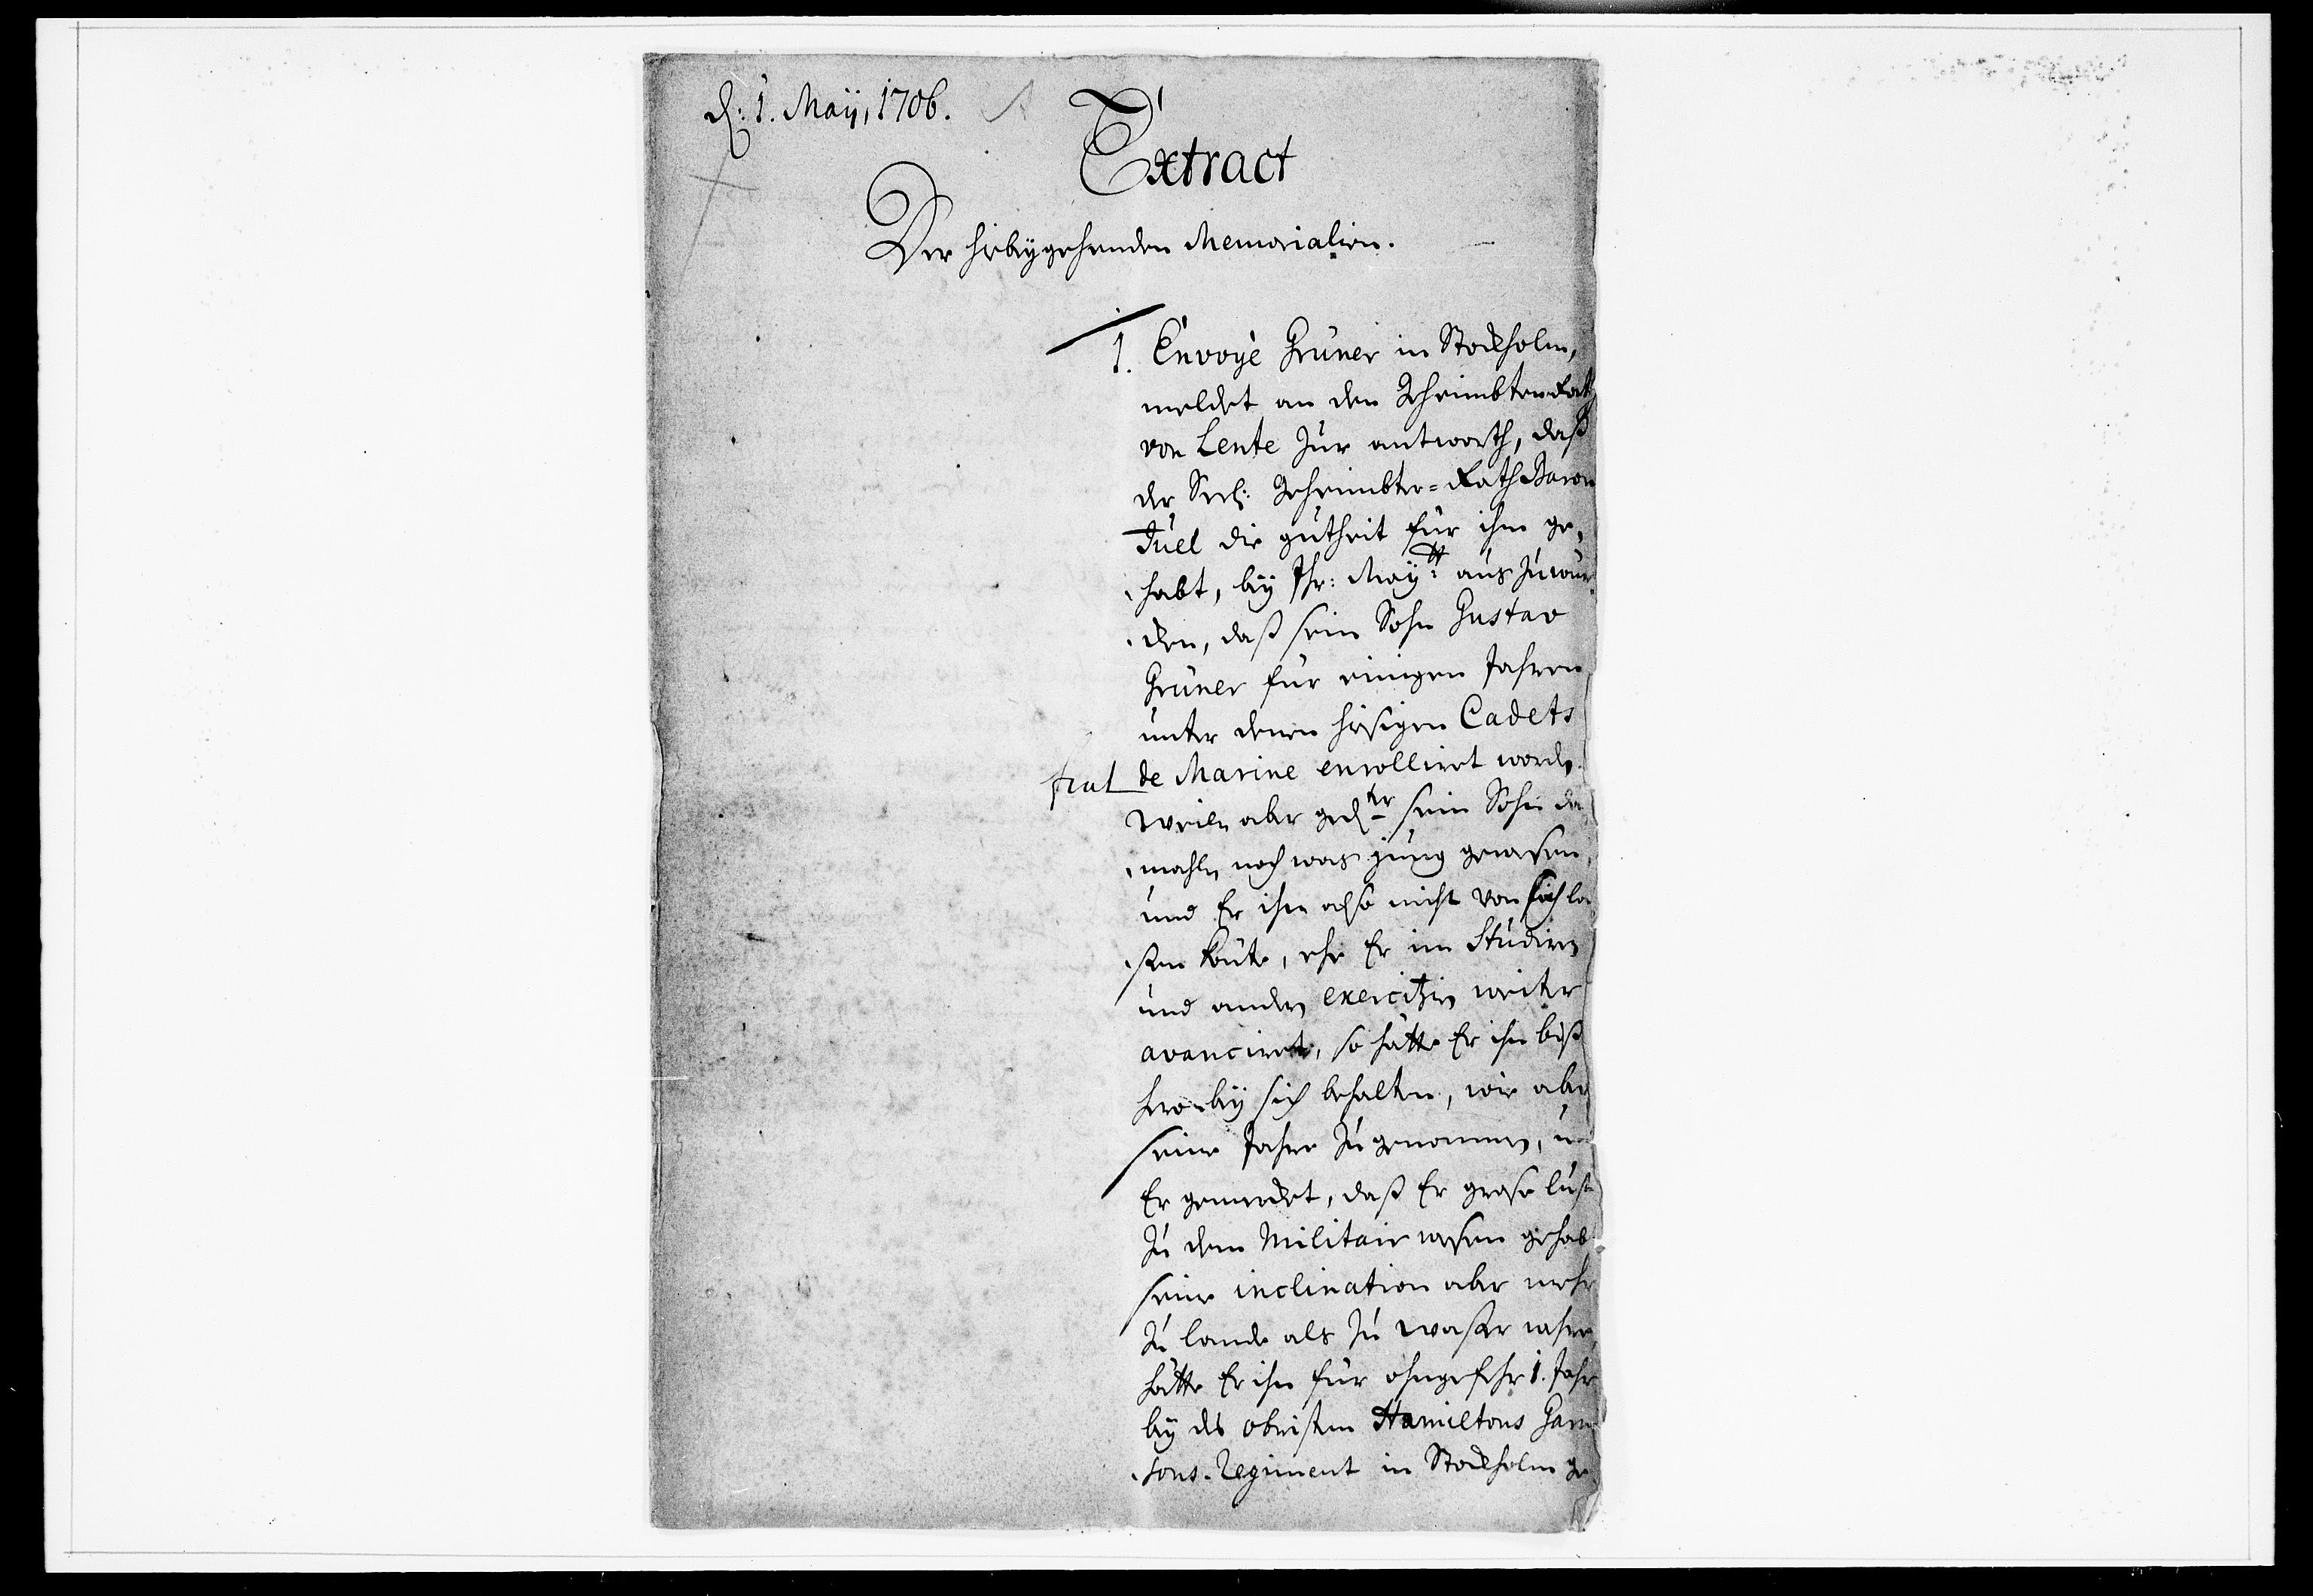 d. 1. Maÿ, 1706.
Extract
Der hiebeÿgehenden Memorialien.
1. Envoyè Grüner in Stockholm,
meldet an den Geheimbten Rath
von Lente zur antworth, daß
der Seel: Geheimbter=Rath Baron
Juel die gutheit für ihm ge,
habt, beÿ Ihr: Maÿ:tt aus zuwür
den, daß sein Sohn Gustav
Grüner für einigen Jahren
unter denen hiesigen Cadets
de Marine enrolliret worden.
Weiln aber ged:ter sein Sohn da
mahln noch was jung gewesen,
und Er ihn also nicht von sich la
ßen könte, ehe Er im Studiren
und andern exercitzien weiter
avanciret, so hätte Er ihn biß
hero beÿ sich behalten, wie aber
seine Jahre zu genommen, un
Er gemercket, daß Er große lust
zu dem Militair wesen gehabt
seine inclination aber mehr
zu lande als zu waßer wehre,
hätte Er ihn für ohngefehr 1. Jahr
beÿ des obristen Hamiltons Garni
sons-Regiment in Stockholm ge